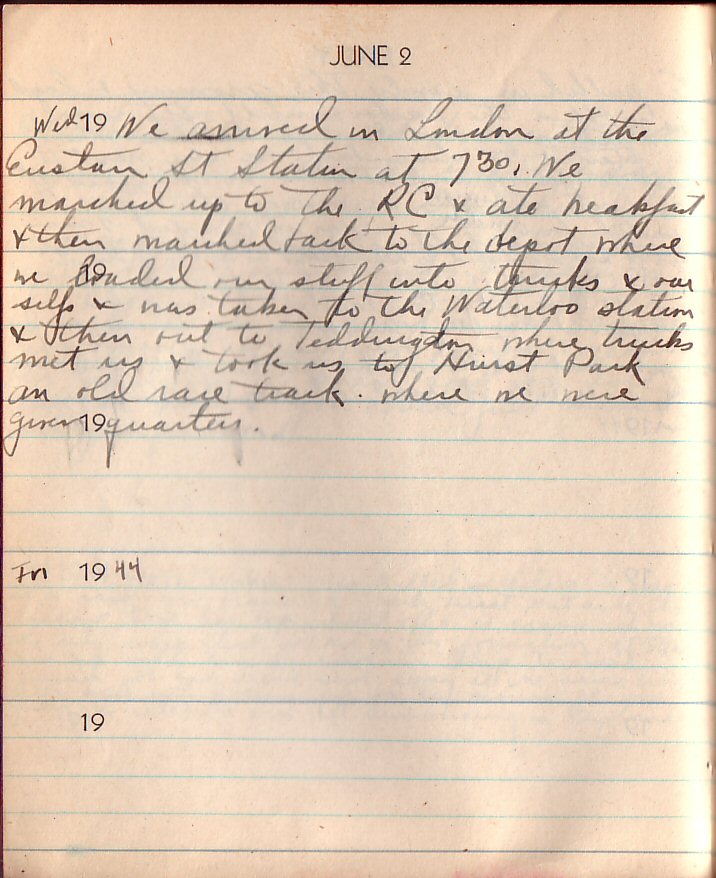 JUNE 2
Wed 19 We arrived in London at the
Eustan St Station at 730. We
marched up to the RC & ate breakfast
& then marched back to the depot where
we 19 loaded our stuff into trucks & our
selfs & was taken to the Waterloo station
& then out to Teddington where trucks
met us & took us to Hurst Park
an old race track. where we were
given 19 quarters.
Fri 1944
19